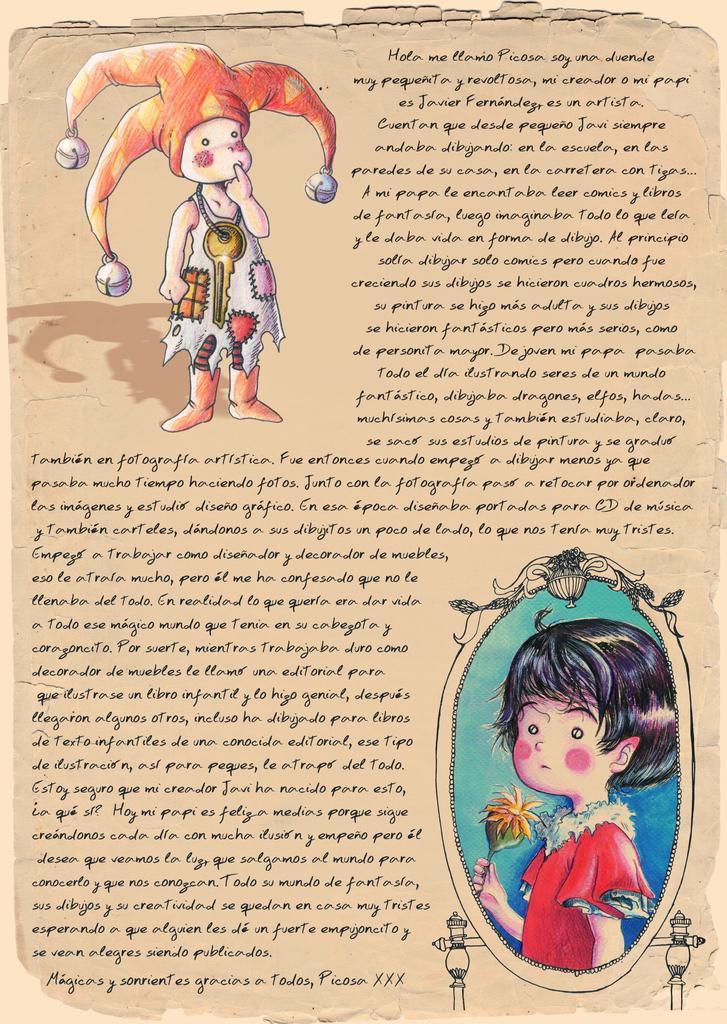 Hola me llamo Picosa soy una duende
muy pequeñita y revoltosa, mi creador o mi papi
es Javier Fernández, es un artista.
Cuentan que desde pequeño Javi siempre
andaba dibujando: en la escuela, en las
paredes de su casa, en la carretera con tizas...
A mi papa le encantaba leer comics y libros
de fantasía, luego imaginaba todo lo que leía
y le daba vida en forma de dibujo. Al principio
solía dibujar solo comics pero cuando fue
creciendo sus dibujos se hicieron cuadros hermosos,
su pintura se hizo más adulta y sus dibujos
se hicieron fantásticos pero más serios, como
de personita mayor. De joven mi papa pasaba
todo el día ilustrando seres de un mundo
fantástico, dibujaba dragones, elfos, hadas...
muchísimas cosas y también estudiaba, claro,
se sacó sus estudios de pintura y se graduó
también en fotografía artística. Fue entonces cuando empezó a dibujar menos ya que
pasaba mucho tiempo haciendo fotos. Junto con la fotografía pasó a retocar por ordenador
las imágenes y estudió diseño gráfico. En esa época diseñaba portadas para CD de música
y también carteles, dándonos a sus dibujitos un poco de lado, lo que nos tenía muy tristes.
Empezó a trabajar como diseñador y decorador de muebles,
eso le atraía mucho, pero él me ha confesado que no le
llenaba del todo. En realidad lo que quería era dar vida
a todo ese mágico mundo que tenia en su cabezota y
corazoncito. Por suerte, mientras trabajaba duro como
decorador de muebles le llamó una editorial para
que ilustrase un libro infantil y lo hizo genial, después
llegaron algunos otros, incluso ha dibujado para libros
de texto infantiles de una conocida editorial, ese tipo
de ilustración, así para peques, le atrapó del todo.
Estoy seguro que mi creador Javi ha nacido para esto,
¿a qué sí? Hoy mi papi es feliz a medias porque sigue
creándonos cada día con mucha ilusión y empeño pero él
desea que veamos la luz, que salgamos al mundo para
conocerlo y que nos conozcan. Todo su mundo de fantasía,
sus dibujos y su creatividad se quedan en casa muy tristes
esperando a que alguien les dé un fuerte empujoncito y
se vean alegres siendo publicados.
Mágicas y sonrientes gracias a todos, Picosa XXX